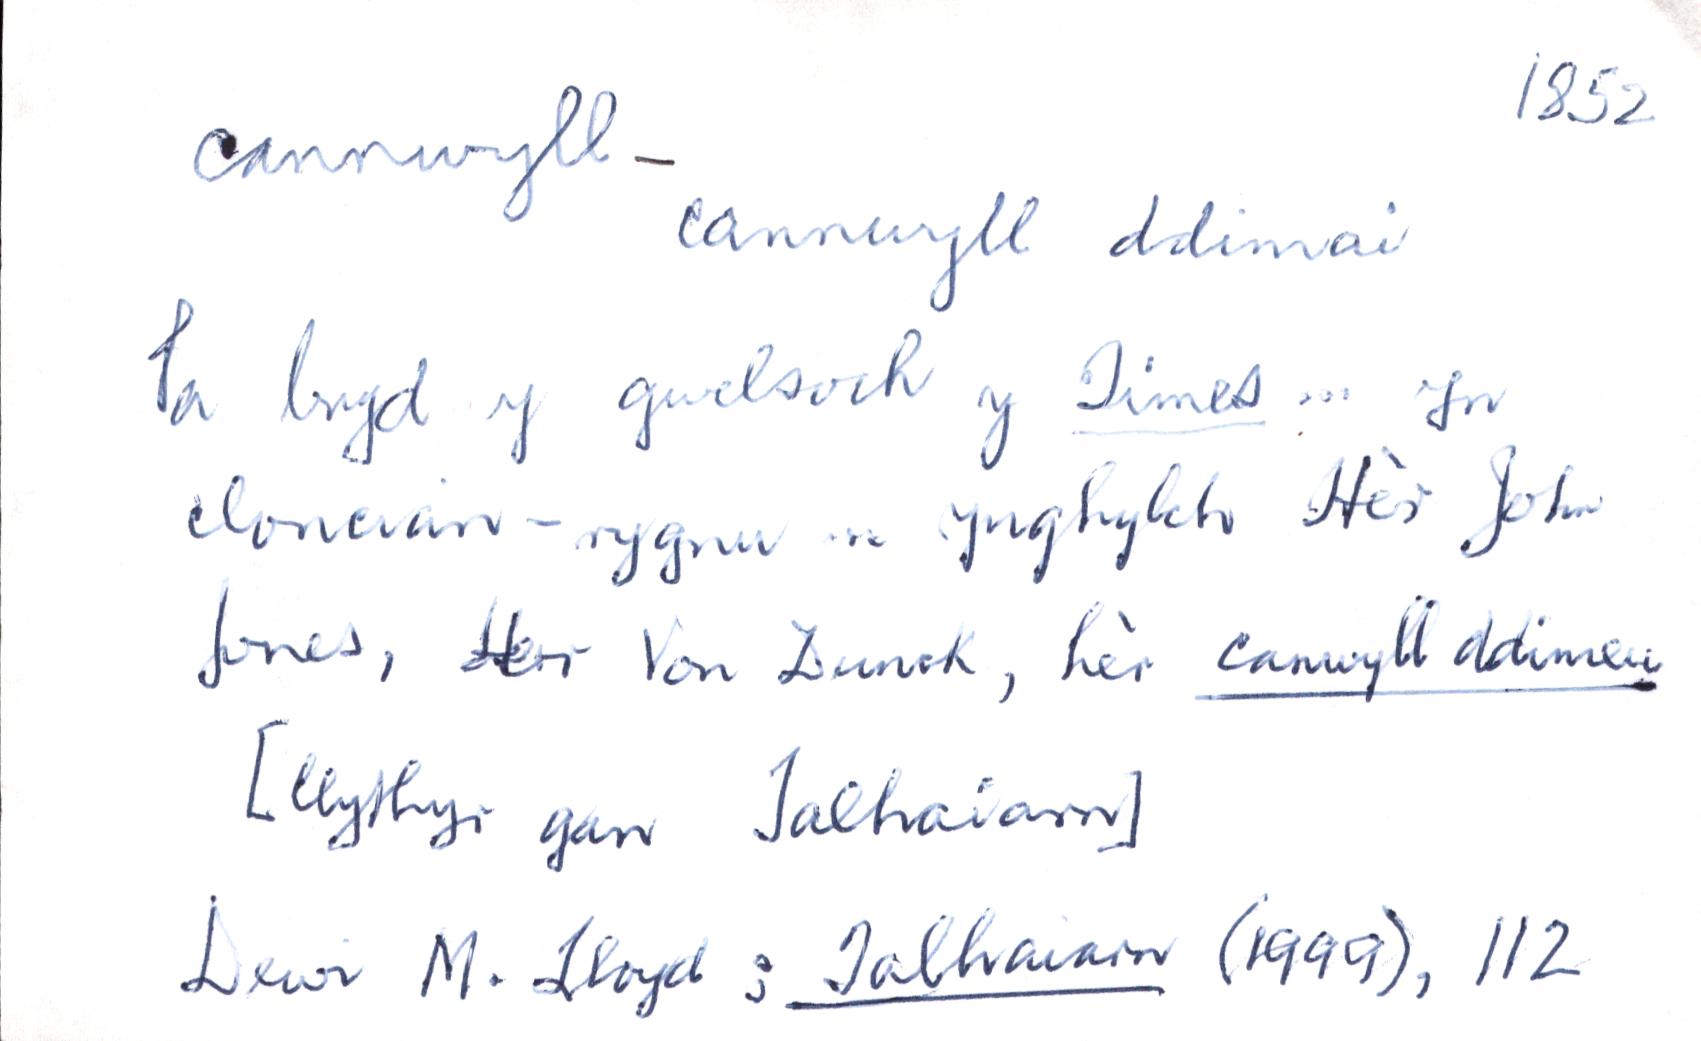 1852
cannwyll –
cannwyll ddimai
Pa bryd y gwelsoch y Times ... yn
cloncian-rygnu ... ynghylch Hèr John
Jones, Herr Von Dunck, hèr canwyll ddimeu
[llythyr gan Talhaiarn]
Dewi M. Lloyd : Talhaiarn (1999), 112